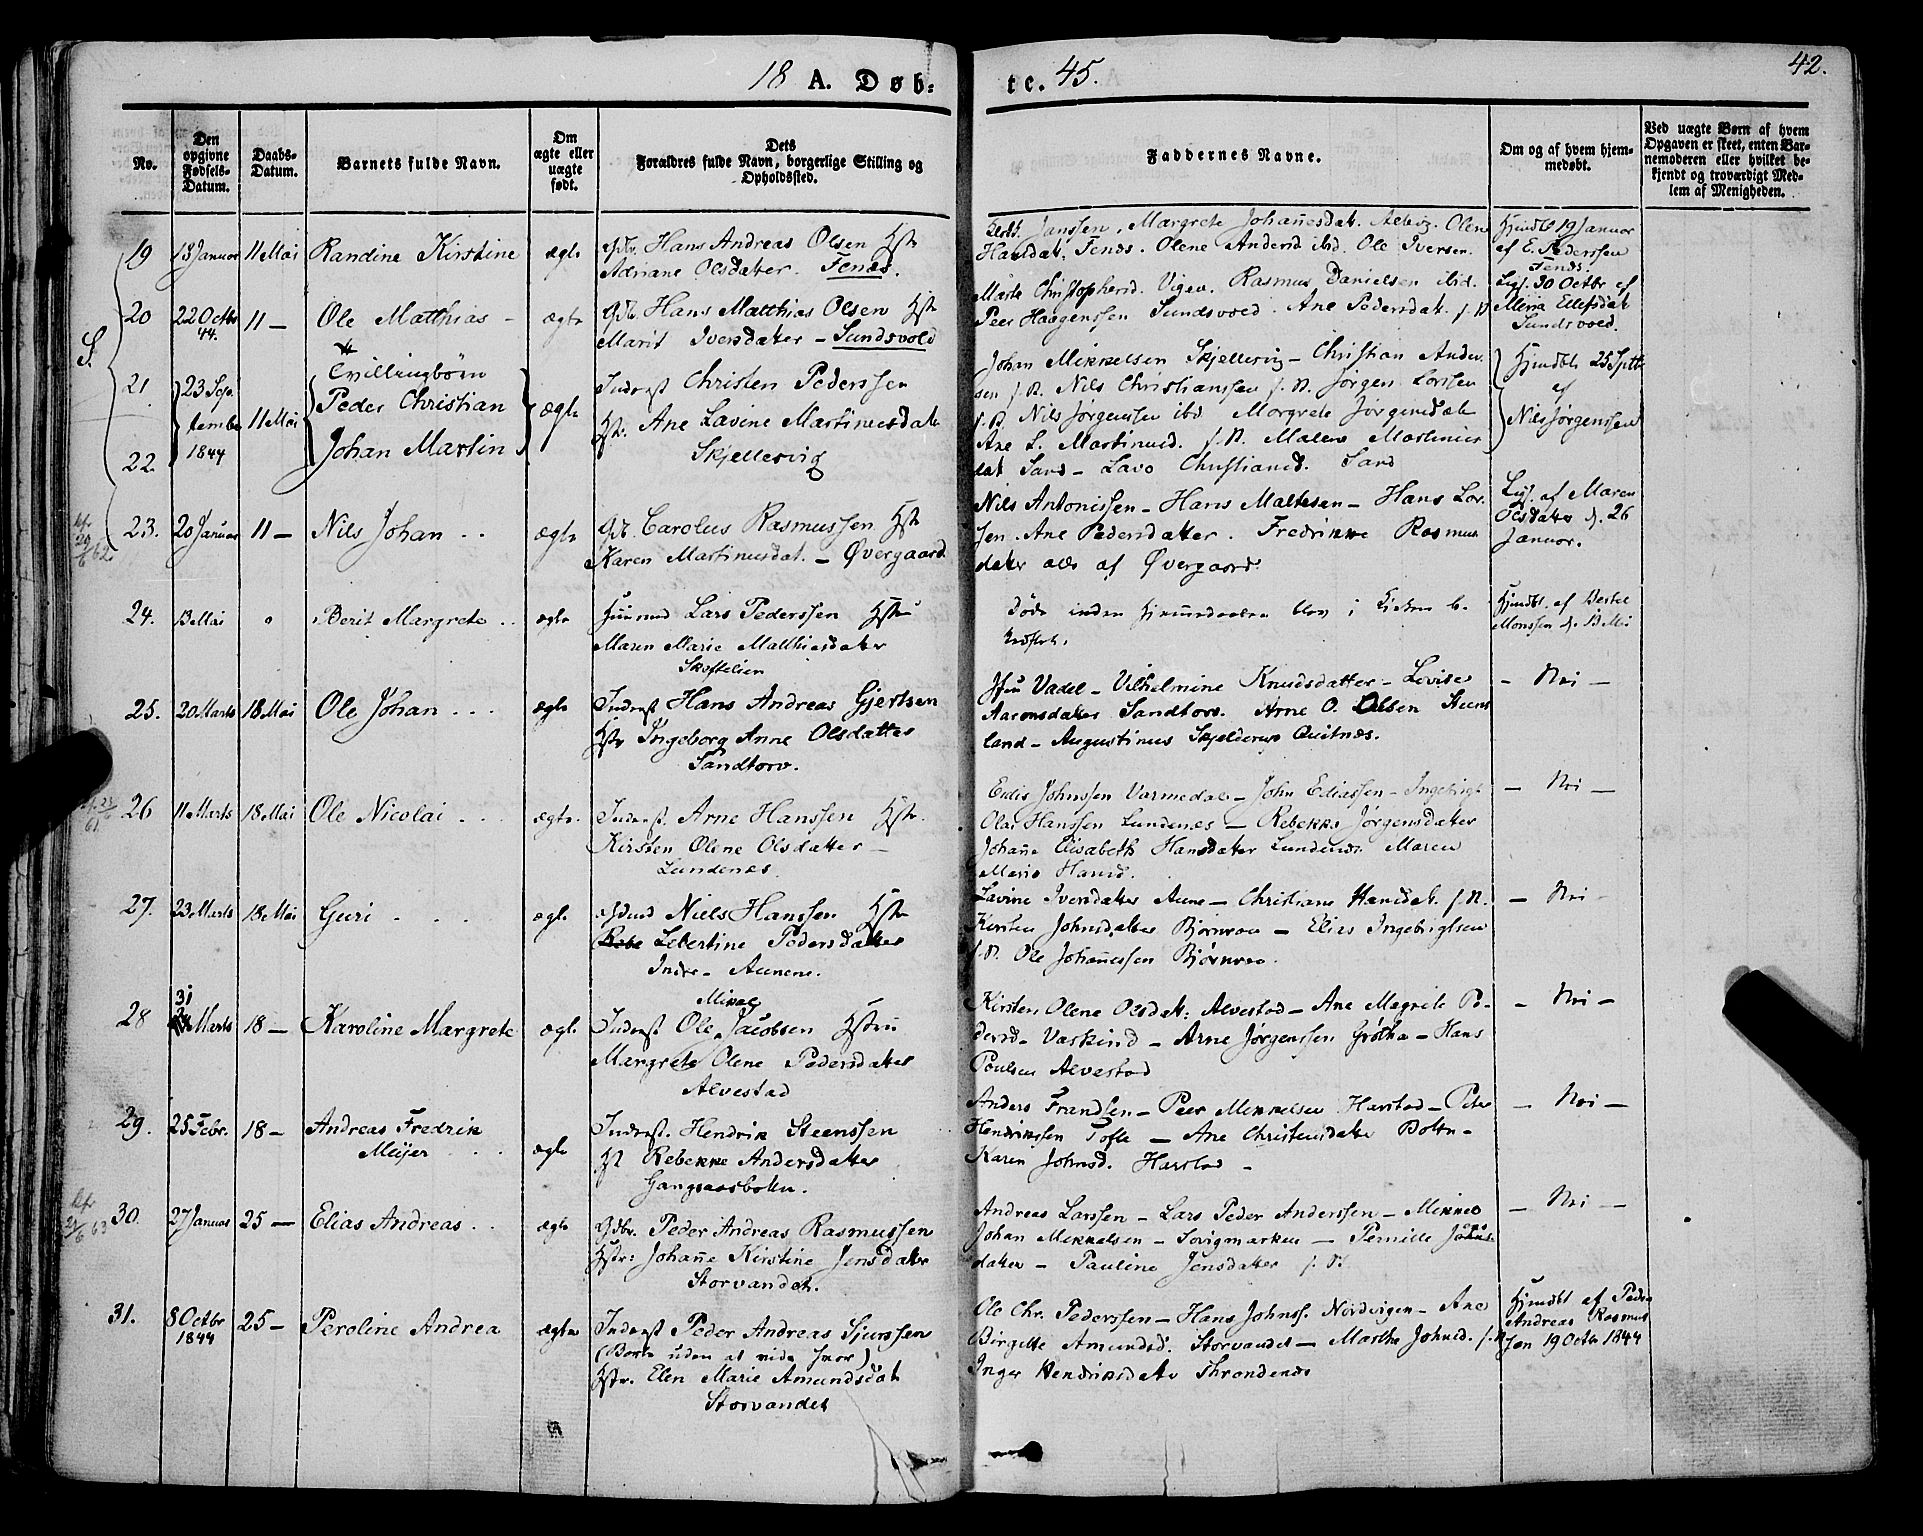 18 A. Døb=
te. 45.
42.
No.
Den opgivne Fødsels-Datum.
Daabs-Datum.
Barnets fulde Navn.
Om ægte eller uægte født.
Dets Forældres fulde Navn, borgerlige Stilling og Opholdssted.
Faddernes Navne.
Om og af hvem hjemmedøbt.
Ved uægte Børn af hvem Opgaven er skeet, enten Barnemoderen eller hvilket bekjendt og troværdigt Medlem af Menigheden.
S.
19 18 Januar 11 Mai Randine Kirstine ægte
Hans Andreas Olsen Hstr
Adriane Olsdatter. Fenæs.
Janssen, Margrete Johañesdat. Olene
Hansdat. Fenæs. Olene Andersd ibd. Ole Iversen.
Hjmdbt 19 Januar
af E. Pederssen
Fenæs.
20 22 Octbr 44. 11 — Ole Matthias - ægte
Gdb. Hans Matthias Olsen Hstr
Marit Iversdatter - Sundsvold
Marte Christophersd. Rasmus Danielsen ibid.
Peer Haagenssen Sundsvold. Ane Pedersdat. f. N
30 Octbr af
Ellefsdat
Sundsvold.
Tvillingbørn
21. 23 September 1844 11 Mai Peder Christian ægte
22. Johan Martin
Inderst Christen Pederssen
Hstr: Ane Lavine Martinusdatr
Skjellesvig
Johan Mikkelsen Skjellesvig - Christian Ander-
sen f. N. Nils Christianssen f. N. Jørgen Larssen
f. N. Nils Jørgenssen ibd Margrete Jørgensdatr
Ane L. Martinusd. f. N. Malene Martinus
dat Sand - Christiansd. Sand
Hjmdbt 25 Septb
af
Nils Jørgenssen
23. 20 Januar 11 — Nils Johan ægte
62
Gdb. Carolus Rasmussen Hstr
Karen Martinusdat. - Øvergaard
Nils Antonissen - Hans Maltesen - Hans Lor.
sen. Ane Pedersdatter. Fredrikke Rasmus
datter alle af Øvergaard.
af Maren
Olsdatter d. 26
Januar.
24. 13 Mai Berit Margrete ægte
Huusmd Lars Pederssen Hstru
Maren Marie Matthiesdatter
Døde inden hjemmedaaben blev i Kirken be-
kræftet.
Hjmdbt. af
Monssen d. 13 Mai
25. 20 Marts 18 Mai Ole Johan ægte
Inderst Hans Andreas Gjertsen
Hstr Ingeborg Anne Olsdatter
Sandtorv.
Vadel - Vilhelmine Knudsdatter - Lovise
Aaronsdatter Sandtorv. Arne O. Olsen Steens
land - Augustinus Skjelderup Quitnæs.
- Nei -
26 11 Marts 18 Mai Ole Nicolai ægte
61
Inderst. Arne Hanssen Hstr.
Kirsten Olene Olsdatter -
Lundenæs.
Johnssen Varmedal - John Eliassen - Ingebrigt
Hanssen Lundenæs - Rebekka Jørgensdatter
Johañe Elisabeth Hansdatter Lundenæs Maren
Marie Hansd.
- Nei -
27. 23 Marts 18 Mai Guri ægte
Niels Hanssen Hstr
Lebertine Pedersdatter
Indre- Aunene.
Lavine Iversdatter Aune - Christiane Hansdat. f. N.
Kirsten Johnsdatter - Elias Ingebrigtsen
f. N. Ole Johañessen
- Nei -
28 31 Marts 18 — Karoline Margrete ægte
Mikal
Inderst Ole Jacobsen Hstru
Margrete Olene Pedersdatter
Alvestad
Kirsten Olene Olsdat: Alvestad - Ane Magrete Pe-
dersd - Vaskind - Arne Jørgenssen Grøtha - Hans
Poulsen Alvestad
- Nei -
29. 25 Febr. 18 — Andreas Fredrik Meijer ægte
Inderst. Hendrik Steenssen
Hst Rebekke Andersdatter
Gangsaasbotn.
Anders Frandsen - Peer Mikkelsen Harstad - Peter
Hendrikssen Tofte - Ane Christensdatter Botn -
Karen Johnsd. Harstad -
- Nei -
30. 27 Januar 25 — Elias Andreas ægte
63
Gdbr. Peder Andreas Rasmussen
Hstr: Johañe Kirstine Jensdatter
Storvandet.
Andreas Larssen - Lars Peder Anderssen - Mikkel
Johan Mikkelsen - Sørvigmarken - Pernille Johns
datter - Pauline Jensdatter f. N
- Nei -
31. 8 Octbr 1844 25 — Peroline Andrea ægte
Inderst Peder Andreas Sjurssen
(Borte uden at vide hvor)
Hstr. Elen Marie Amundsdat
Storvandet
Ole Chr. Pederssen - Hans Johnss. Nordvigen - Ane
Birgitte Amundsd. Storvandet - Martha Johnsd. f. N
Inger Hendriksdatr Throndenæs
Hjmdbt af Peder
Andreas Rasmus
sen 19 Octbr 1844